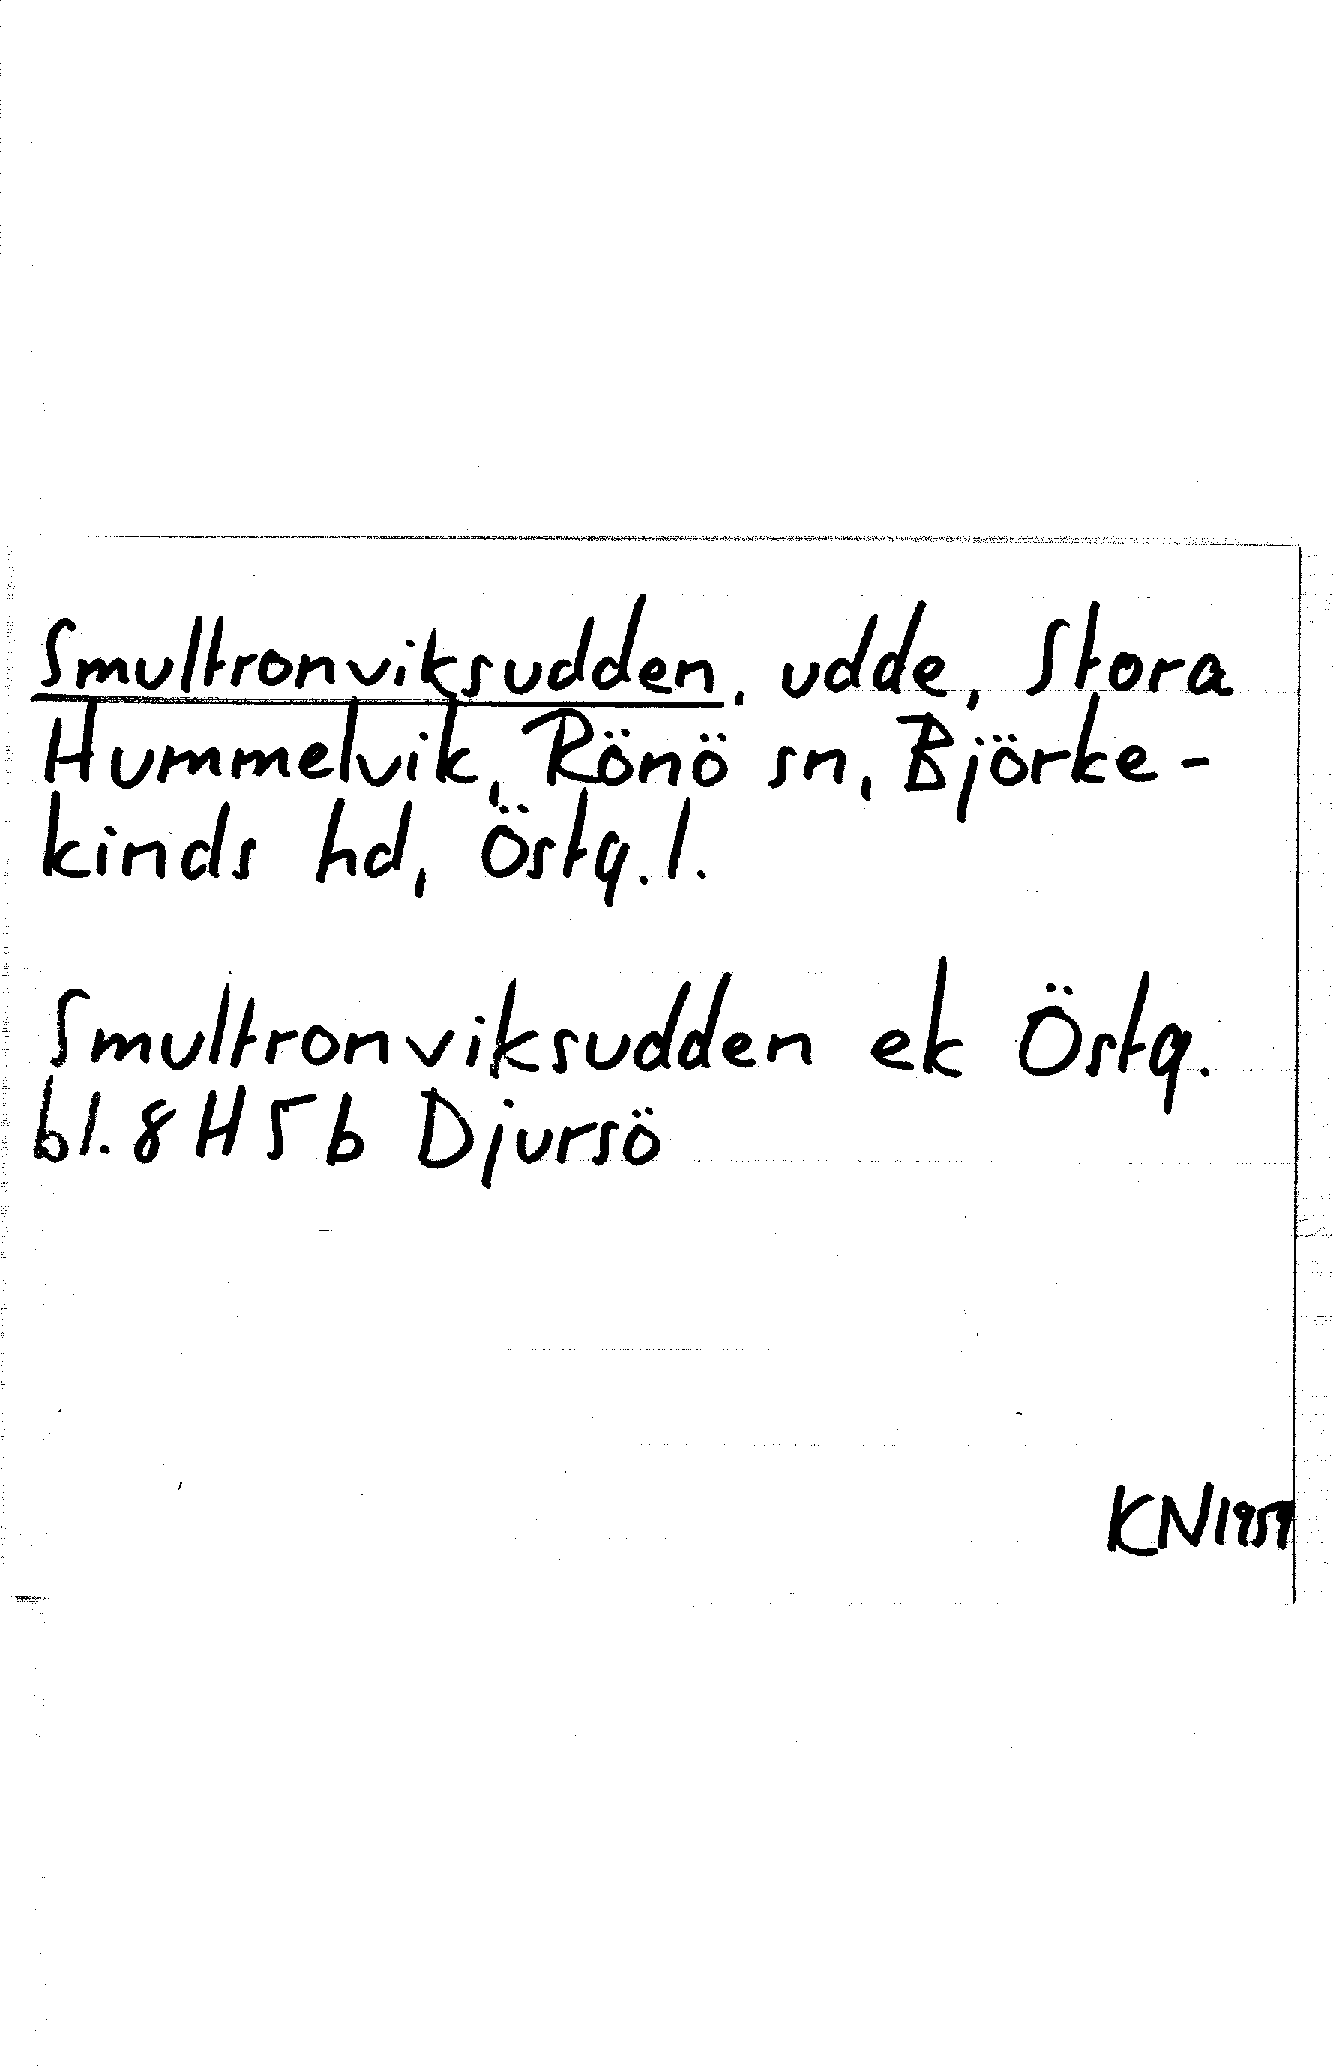 Smultronviksudden, udde, Stora
Hummelvik, Rönö sn, Björke-
kinds hd, Östg. l.
Smultronviksudden ek Östg.
bl. 8 H 5 b Djursö
KN 1959